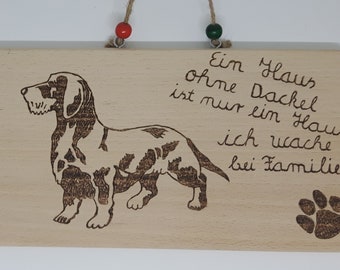 Ein Haus
ohne Dackel
ist nur ein Hau
ich wache
bei Familie